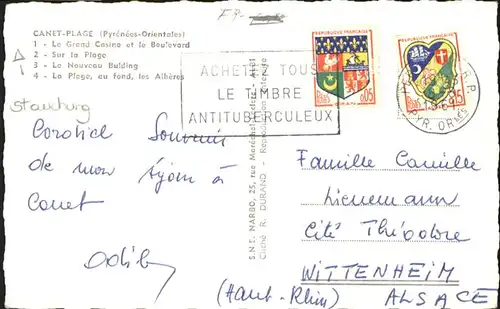 FR-
CANET-PLAGE (Pyrénées-Orientales)
1 - Le Grand Casino et le Boulevard
2 - Sur la Plage
3 - Le Nouveau Bulding
4 - La Plage, au fond, les Albères
ACHETEZ TOUS
LE TIMBRE
ANTITUBERCULEUX
REPUBLIQUE FRANÇAISE
POSTES 0,05
ORAN
REPUBLIQUE FRANÇAISE
0,15
R.P.
PYR. OR LES
S.N.E. NARBO, 25, rue Maréchal
Cliché R. DURAND - Reproduction
Cordial Souvenir
de mon séjour à
Canet
Odile
Famille Camille
Lienemann
Cité Théodore
WITTENHEIM
(Haut-Rhin) ALSACE